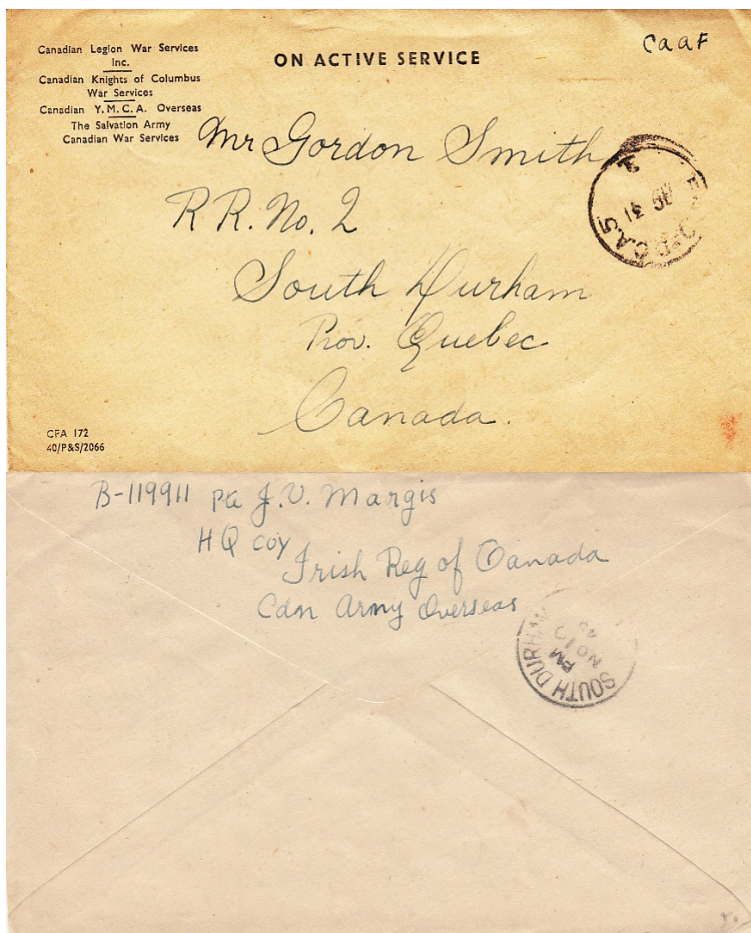 Canadian Legion War Services
Inc.
Canadian Knights of Columbus
War Services
Canadian Y.M.C.A. Overseas
The Salvation Army
Canadian War Services
ON ACTIVE SERVICE
CaaF
Mr Gordon Smith
R R. No. 2
South Durham
Prov. Quebec
Canada.
31
CFA 172
40/P&S/2066
B-119911 Pte J.V. Margis
HQ Coy
Irish Reg of Canada
Cdn Army Overseas
SOUTH DURHAM
PM
NO 10